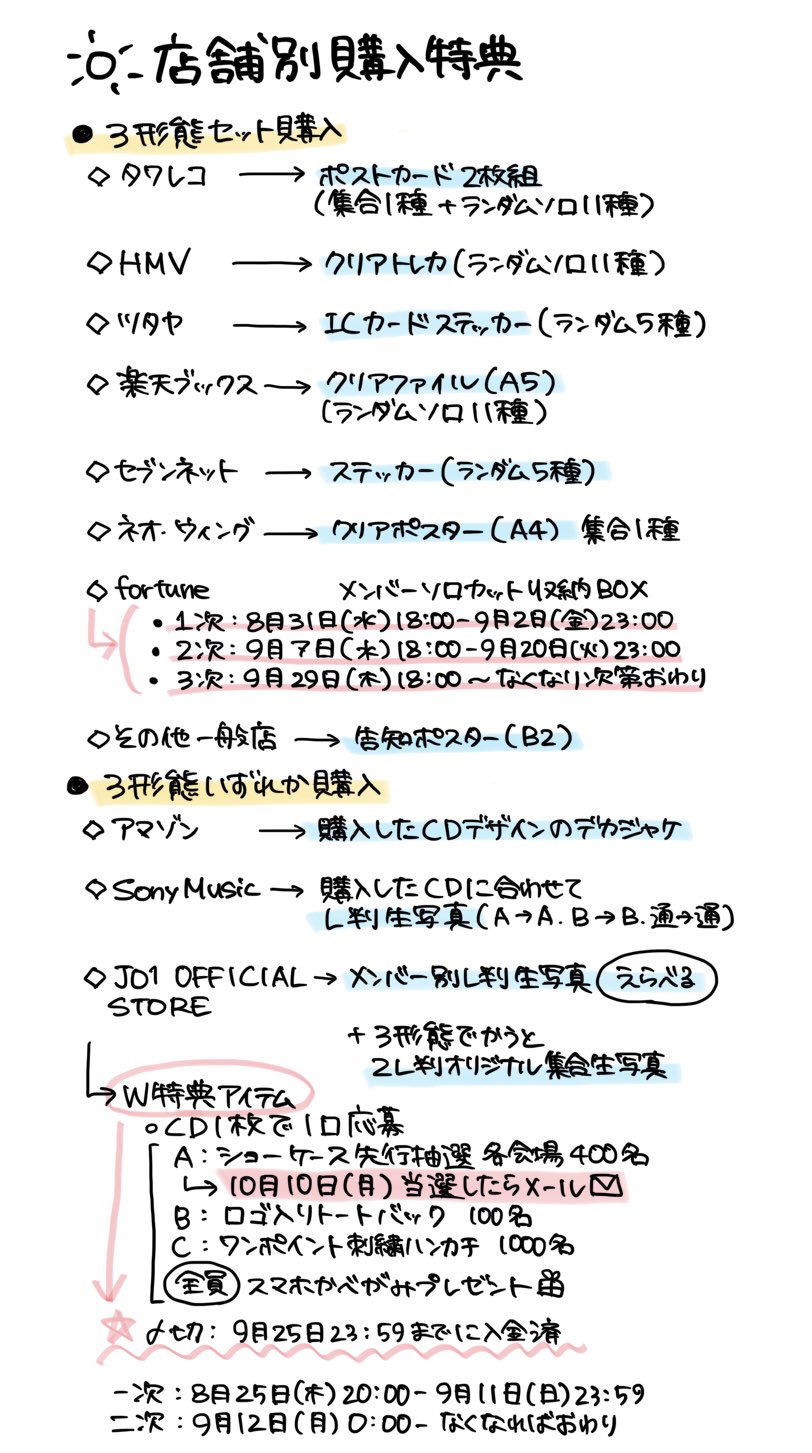 店舗別購入特典
● 3形態セット購入
◇ タワレコ → ポストカード 2枚組
(集合1種 + ランダムソロ11種)
◇ HMV → クリアトレカ(ランダムソロ11種)
◇ ツタヤ → ICカードステッカー(ランダム5種)
◇ 楽天ブックス → クリアファイル(A5)
(ランダムソロ11種)
◇ セブンネット → ステッカー(ランダム5種)
◇ ネオ・ウィング → クリアポスター(A4) 集合1種
◇ fortune メンバーソロカット収納BOX
・1次:8月31日(水)18:00-9月2日(金)23:00
・2次:9月7日(水)18:00-9月20日(火)23:00
・3次:9月29日(木)18:00~なくなり次第おわり
◇ その他一般店 → 告知ポスター(B2)
● 3形態いずれか購入
◇ アマゾン → 購入したCDデザインのデカジャケ
◇ Sony Music → 購入したCDに合わせて
L判生写真(A→A.B→B.通→通)
◇ JO1 OFFICIAL → メンバー別L判生写真 えらべる
STORE
+ 3形態でかうと
2L判オリジナル集合生写真
W特典アイテム
○CD1枚で1口応募
A:ショーケース先行抽選 各会場400名
↳ 10月10日(月)当選したらメール✉
B:ロゴ入りトートバック 100名
C:ワンポイント刺繍ハンカチ 1000名
全員 スマホかべがみプレゼント
☆〆切:9月25日23:59までに入金済
一次:8月25日(木)20:00-9月11日(日)23:59
二次:9月12日(月)0:00-なくなればおわり